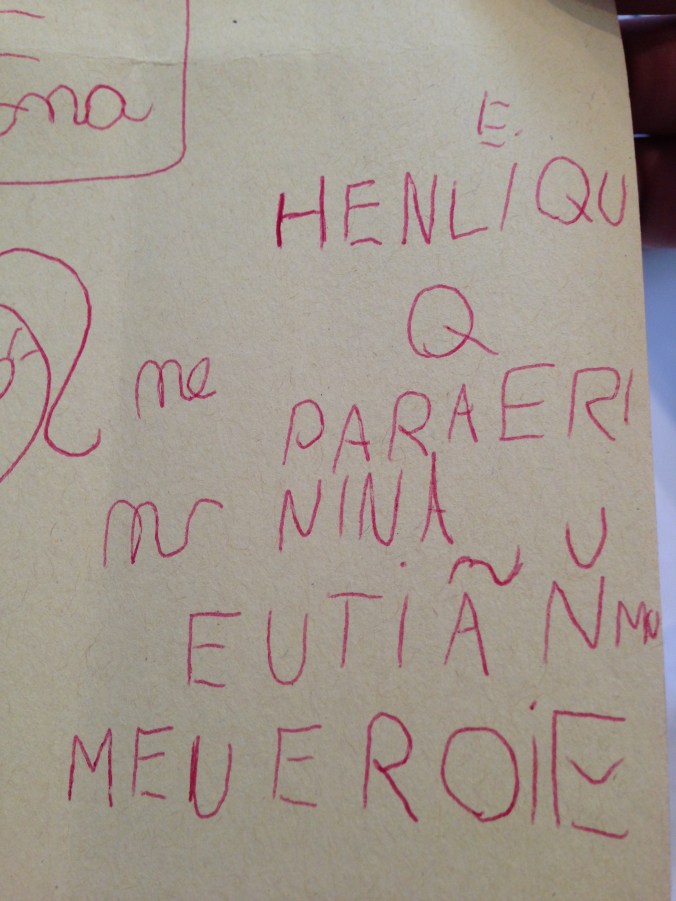 ona
E.
HENLIQU
Q
ne
PARAERI
NINA
U
EUTIÃ N
MEU EROIE